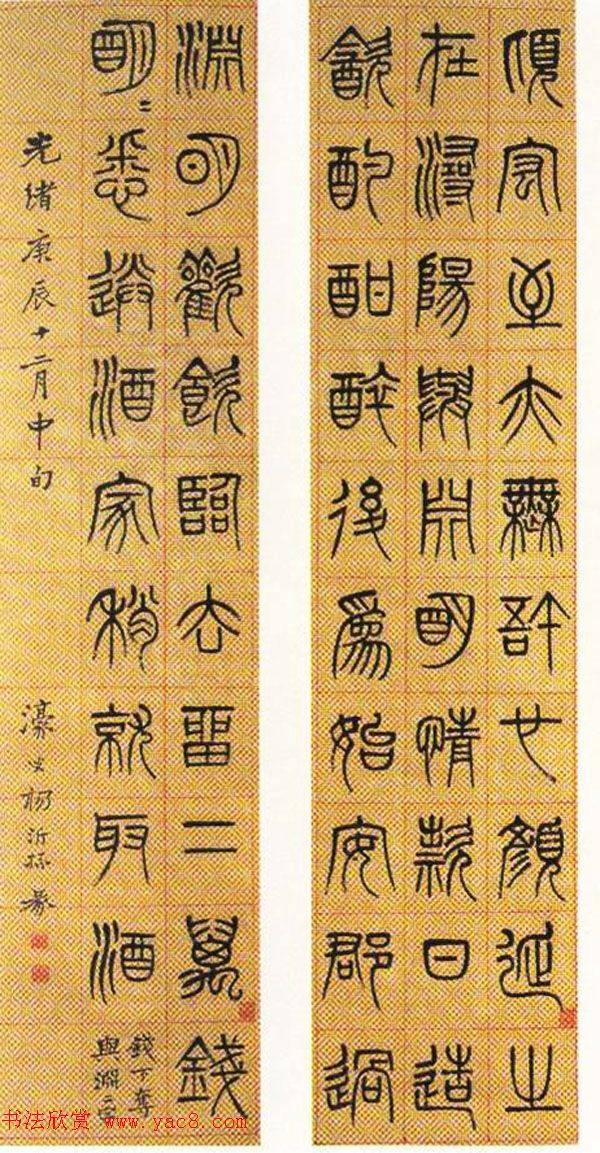 頃宏至亦無啎也顏延之
在潯陽與淵明情款日造
飲酌酣醉後為始安郡過
淵明歡飲臨去留二萬錢
明〻悉送酒家稍就取酒
錢下奪
與淵二字
光緒庚辰十二月中旬
濠叟楊沂孫篆
书法欣赏 www.yac8.com